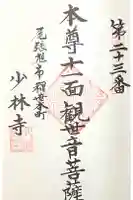 第二十三番
本尊十一面観世音菩薩
尾張旭市稲葉本町
少林寺